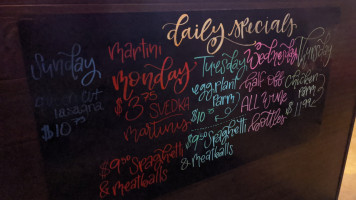 daily specials
Sunday
lasagna
$10
martini
monday
$3.75
SVEDKA
martinis
$9 Spaghetti
& meatballs
Tuesday
eggplant
Parm
$10
$9 Spaghetti
& meatballs
Wednesday
half off
All wine
bottles
Thursday
Chicken
Parm
$11.99